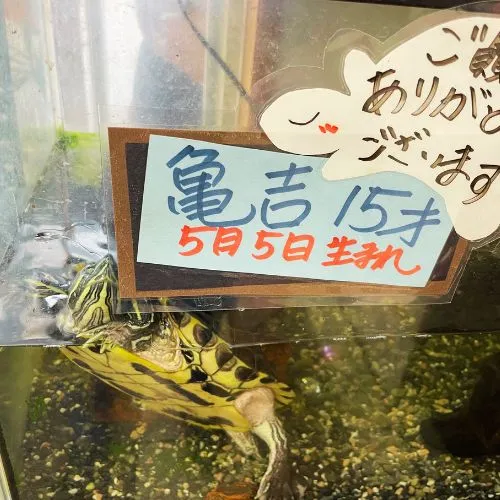 ご
ありがと
ございます
亀吉 15才
5月5日 生まれ